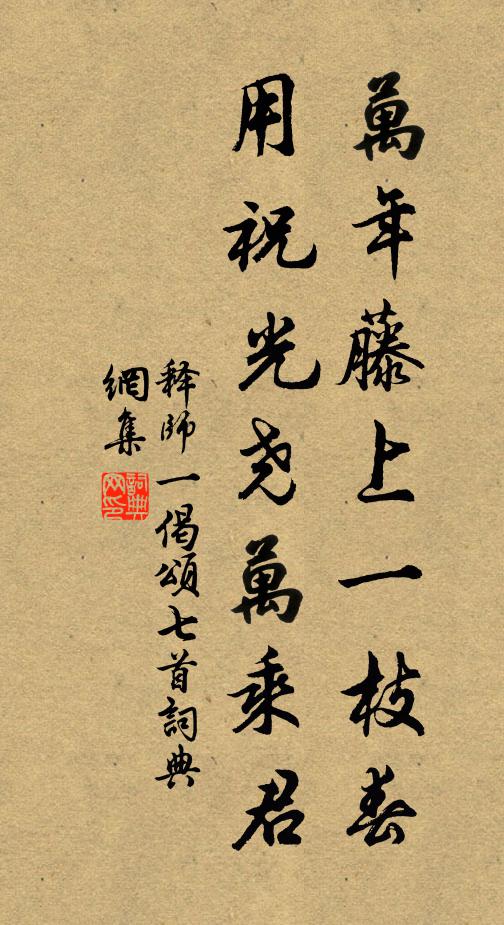 萬年藤上一枝春
用祝光尧萬乘君
释師一偈頌七首詞典
網集
詞典
网印